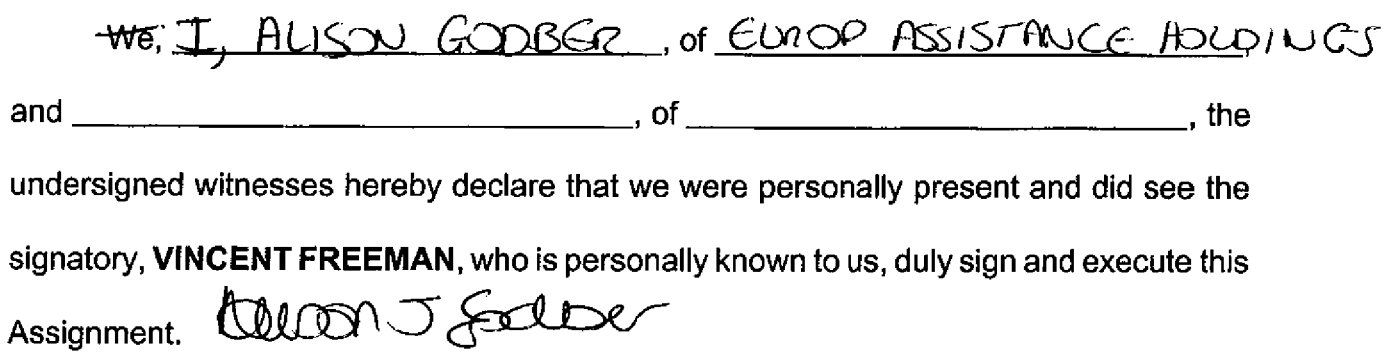 We, I, ALISON GODBER, of EUROP ASSISTANCE HOLDINGS
and ____________________, of ____________________, the
undersigned witnesses hereby declare that we were personally present and did see the
signatory, VINCENT FREEMAN, who is personally known to us, duly sign and execute this
Assignment. Alison J Godber